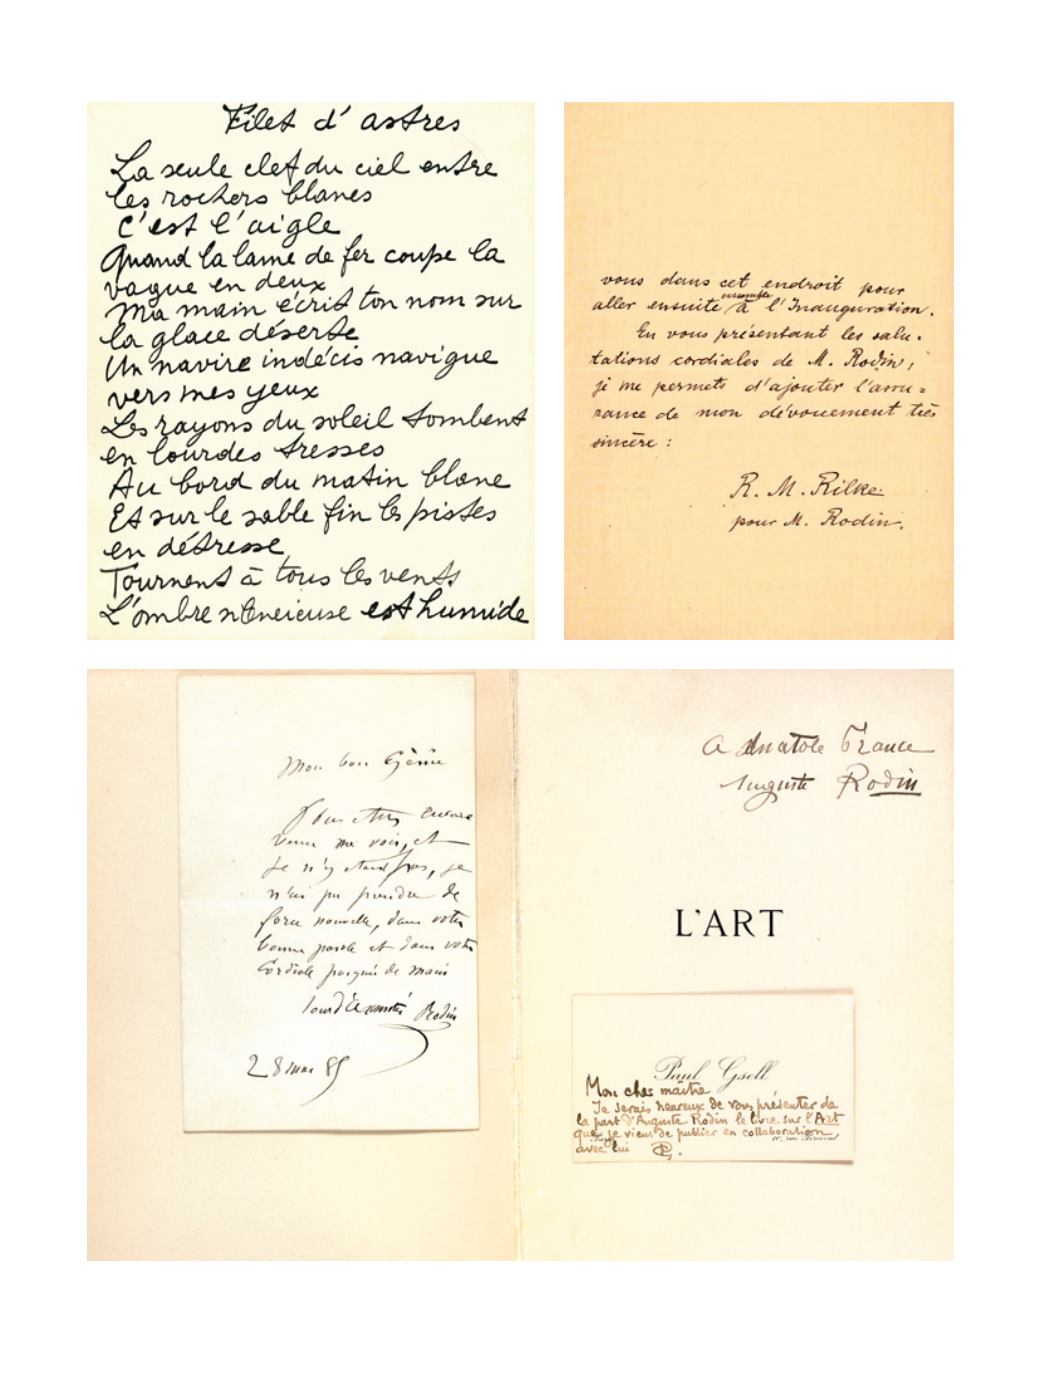 Filet d'astres
La seule clef du ciel entre
les rochers blancs
C'est l'aigle
Quand la lame de fer coupe la
vague en deux
Ma main écrit ton nom sur
la glace déserte
Un navire indécis navigue
vers mes yeux
Les rayons du soleil tombent
en lourdes tresses
Au bord du matin blanc
Et sur le sable fin les pistes
en détresse
Tournent à tous les vents
L'ombre est humide
vous dans cet endroit pour
aller ensuite ensemble à l'Inauguration.
En vous présentant les salu-
tations cordiales de M. Rodin,
je me permets d'ajouter l'assu-
rance de mon dévouement très
sincère :
R. M. Rilke
pour M. Rodin.
Mon bon Génie
Vous etes encore
venu me voir, et
je n'y etais pas, je
n'ai pu prendre de
force nouvelle, dans votre
bonne parole et dans votre
Cordiale de main
Rodin
28 mai 85
A Anatole France
Auguste Rodin
L'ART
Paul Gsell
Mon cher maître
Je serais heureux de vous présenter de
la part d'Auguste Rodin le livre sur l'Art
que je viens de publier en collaboration
avec lui